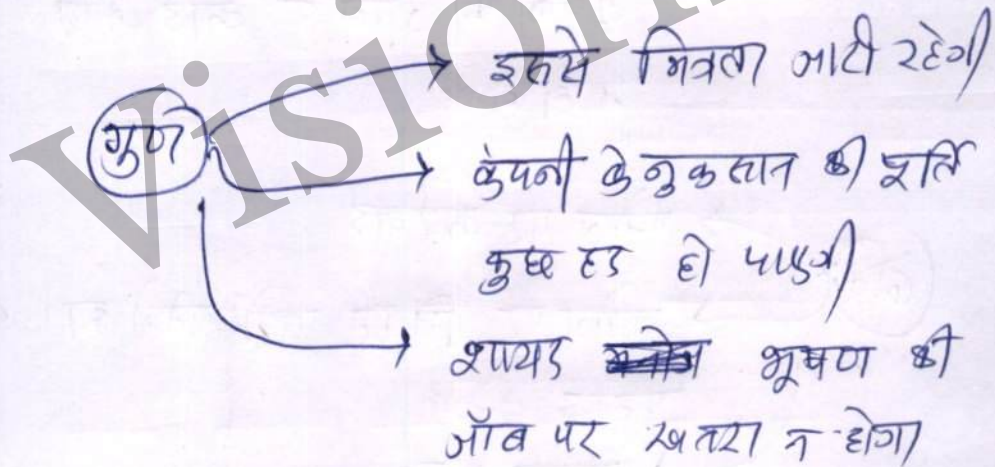 Vision
गुण
इससे मित्रता जारी रहेगी
कंपनी के नुकसान की पूर्ति
कुछ हद हो पाएगी
शायद भूषण की
जॉब पर खतरा न होगा